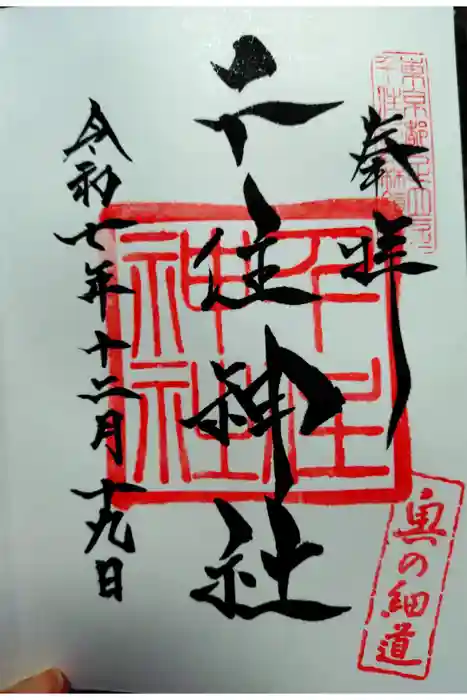 奉拝
千住神社
令和七年十二月十九日
千住
神社
東京都足立区
千住
奥の細道